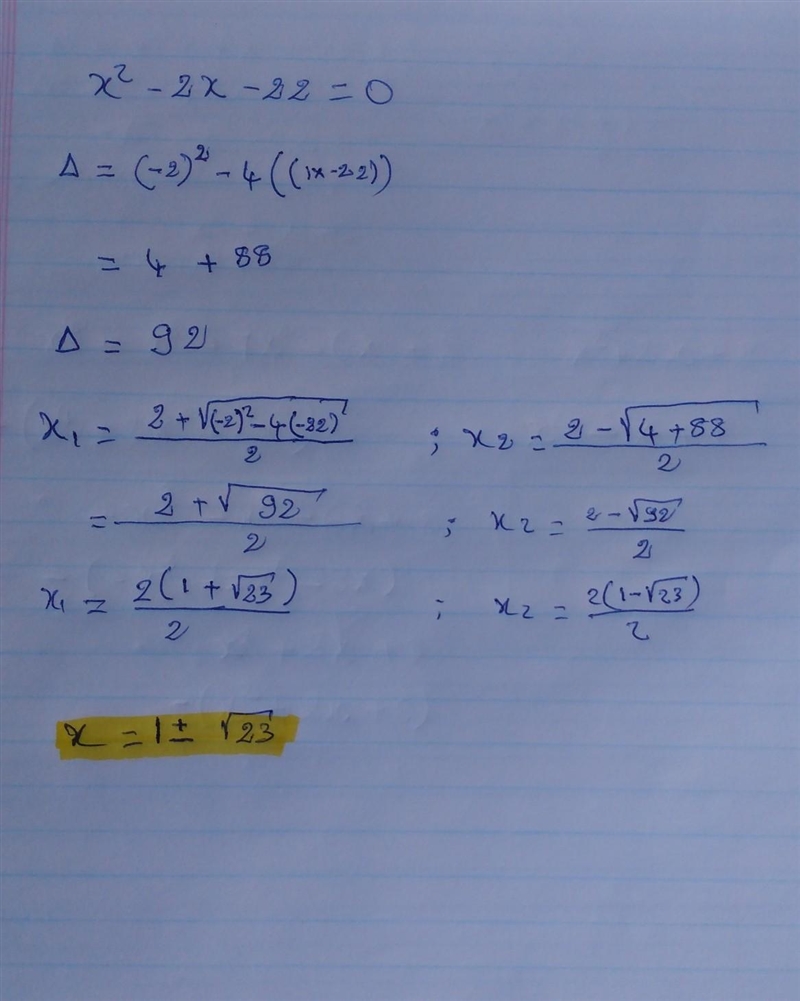 x² - 2x - 22 = 0
Δ = (-2)² - 4((1x-22))
= 4 + 88
Δ = 92
x₁ = (2 + √((-2)² - 4(-22)))/2 ; x₂ = (2 - √(4 + 88))/2
= (2 + √92)/2 ; x₂ = (2 - √92)/2
x₁ = 2(1 + √23)/2 ; x₂ = 2(1 - √23)/2
x = 1 ± √23